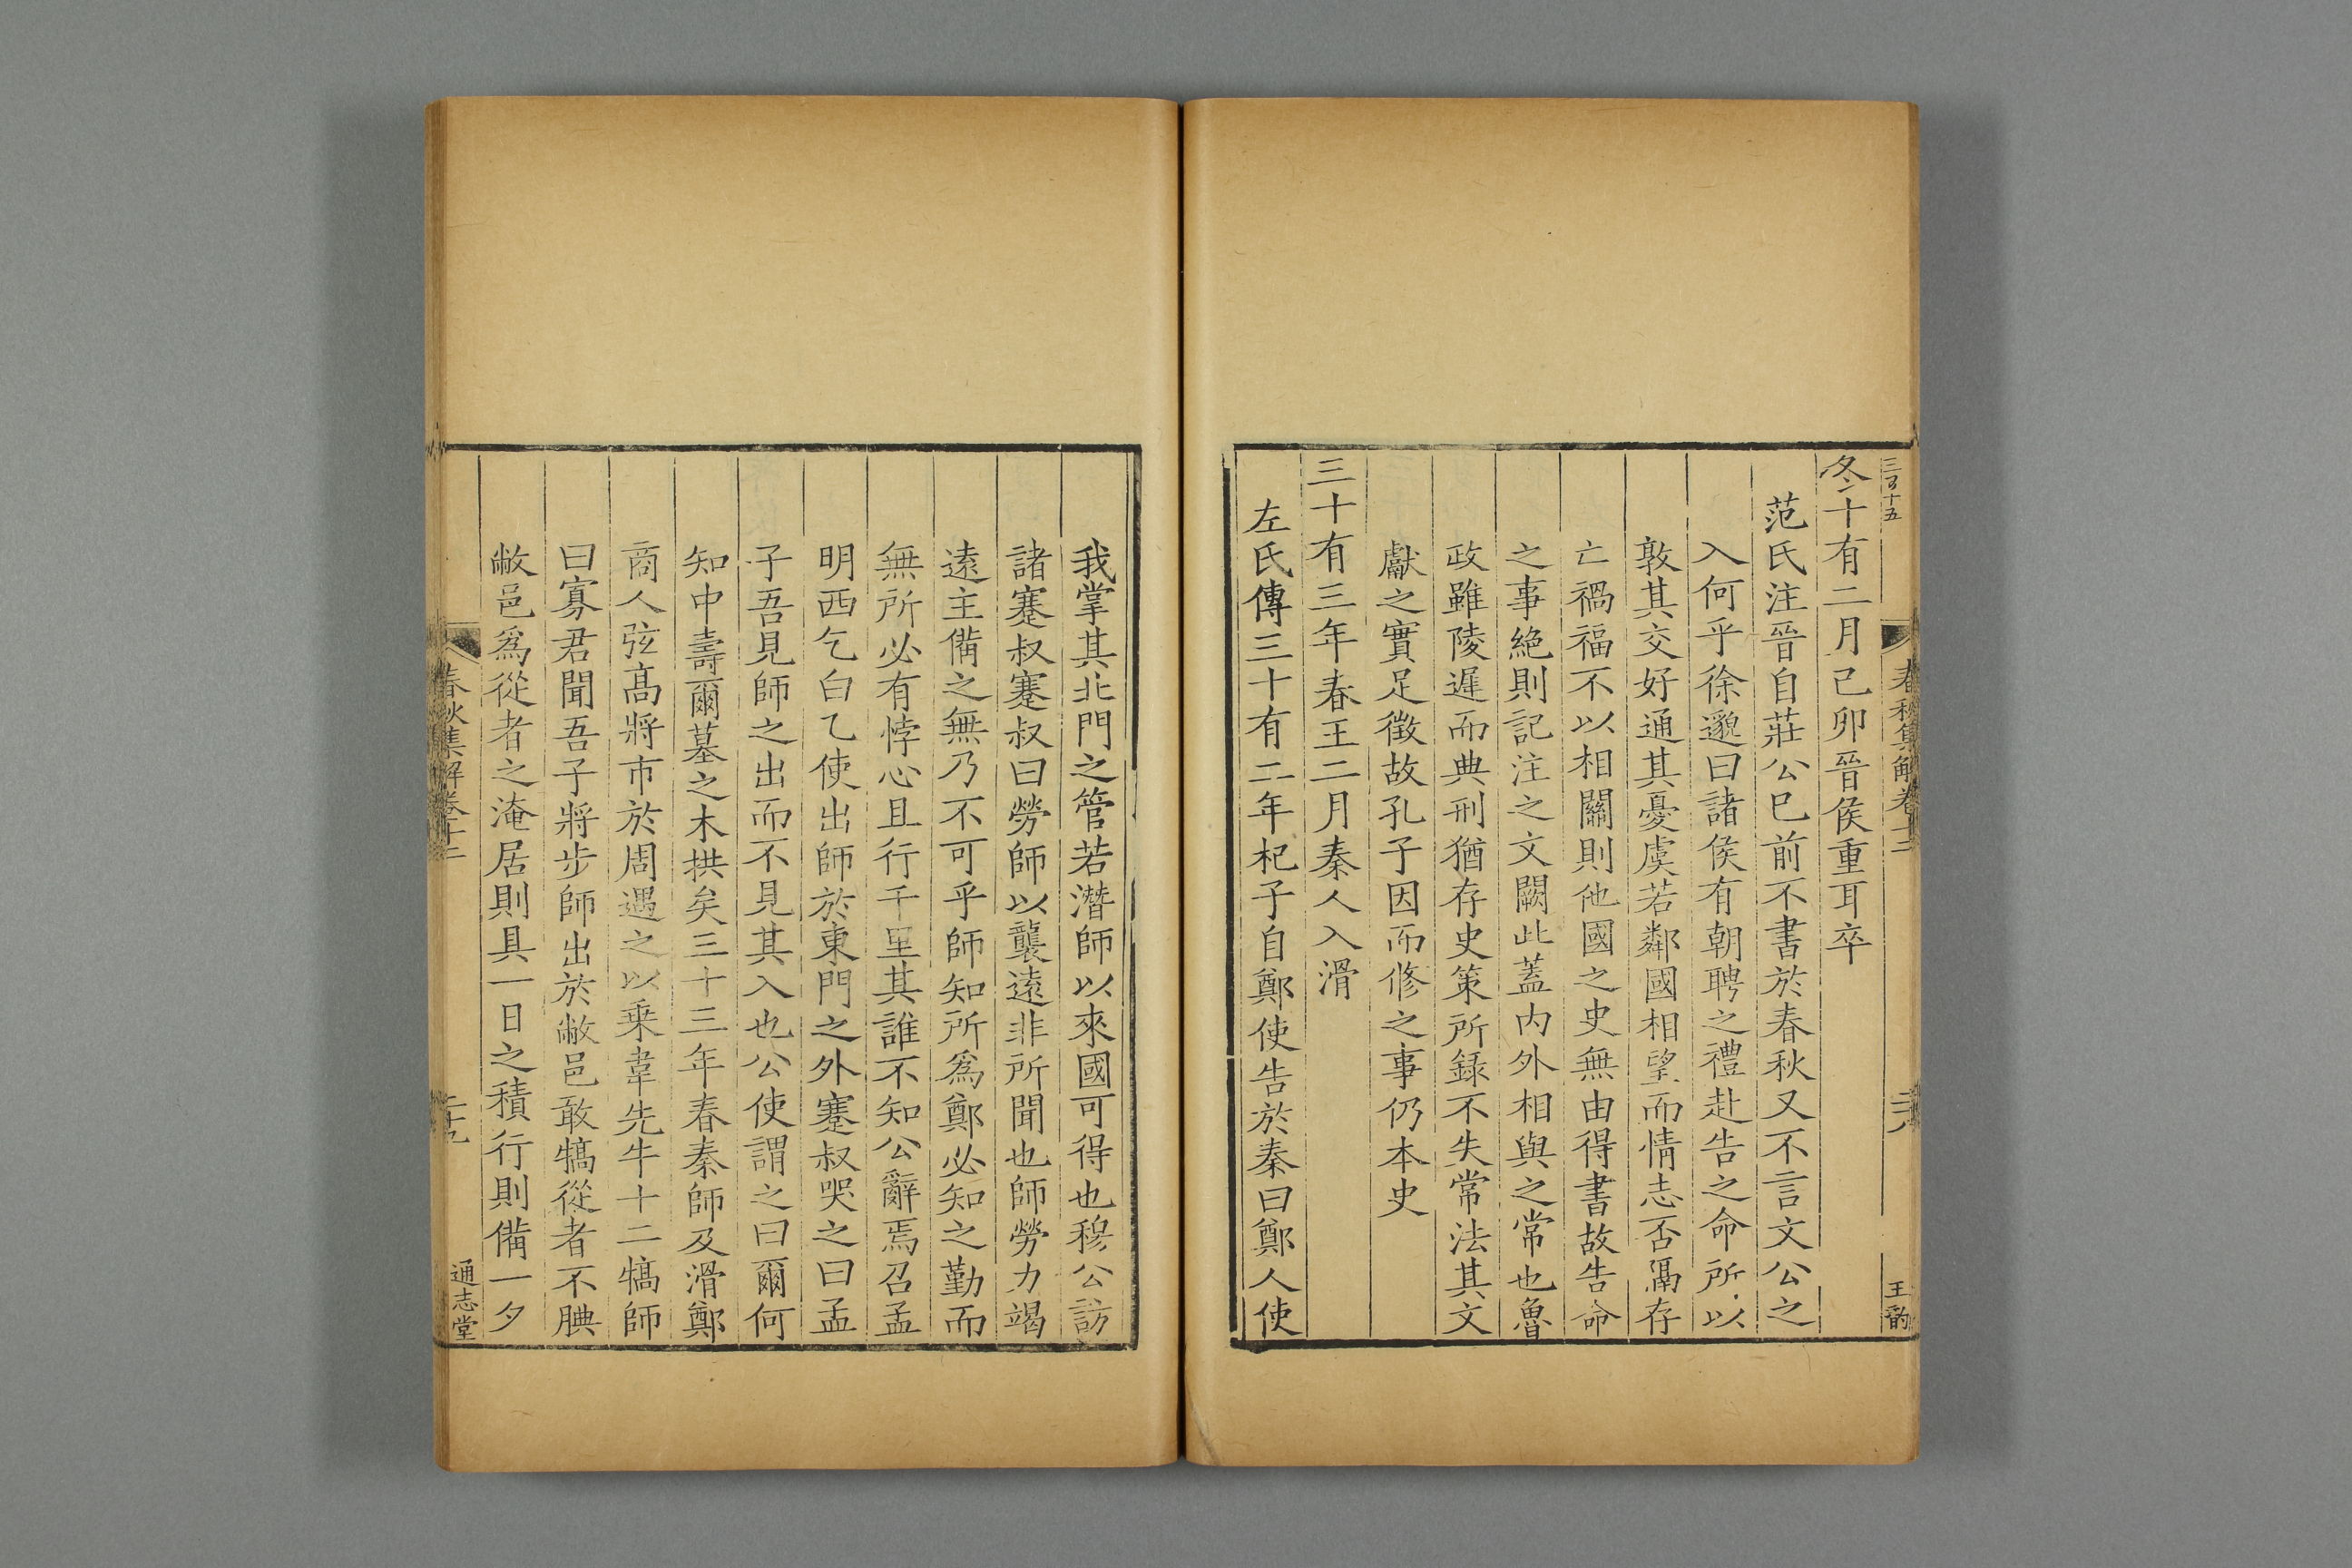 三百十五
春秋集解卷十二
二十八
王韵
冬十有二月己卯晉侯重耳卒
范氏注晉自莊公已前不書於春秋又不言文公之
入何乎徐邈曰諸侯有朝聘之禮赴告之命所以
敦其交好通其憂虞若鄰國相望而情志否隔存
亡禍福不以相關則他國之史無由得書故告命
之事絶則記注之文闕此蓋内外相與之常也魯
政雖陵遲而典刑猶存史策所録不失常法其文
獻之實足徵故孔子因而修之事仍本史
三十有三年春王二月秦人入滑
左氏傳三十有二年杞子自鄭使告於秦曰鄭人使
我掌其北門之管若潛師以來國可得也穆公訪
諸蹇叔蹇叔曰勞師以襲遠非所聞也師勞力竭
遠主備之無乃不可乎師知所爲鄭必知之勤而
無所必有悖心且行千里其誰不知公辭焉召孟
明西乞白乙使出師於東門之外蹇叔哭之曰孟
子吾見師之出而不見其入也公使謂之曰爾何
知中壽爾墓之木拱矣三十三年春秦師及滑鄭
商人弦高將市於周遇之以乗韋先牛十二犒師
曰寡君聞吾子將步師出於敝邑敢犒從者不腆
敝邑爲從者之淹居則具一日之積行則備一夕
春秋集解卷十二
二十九
通志堂